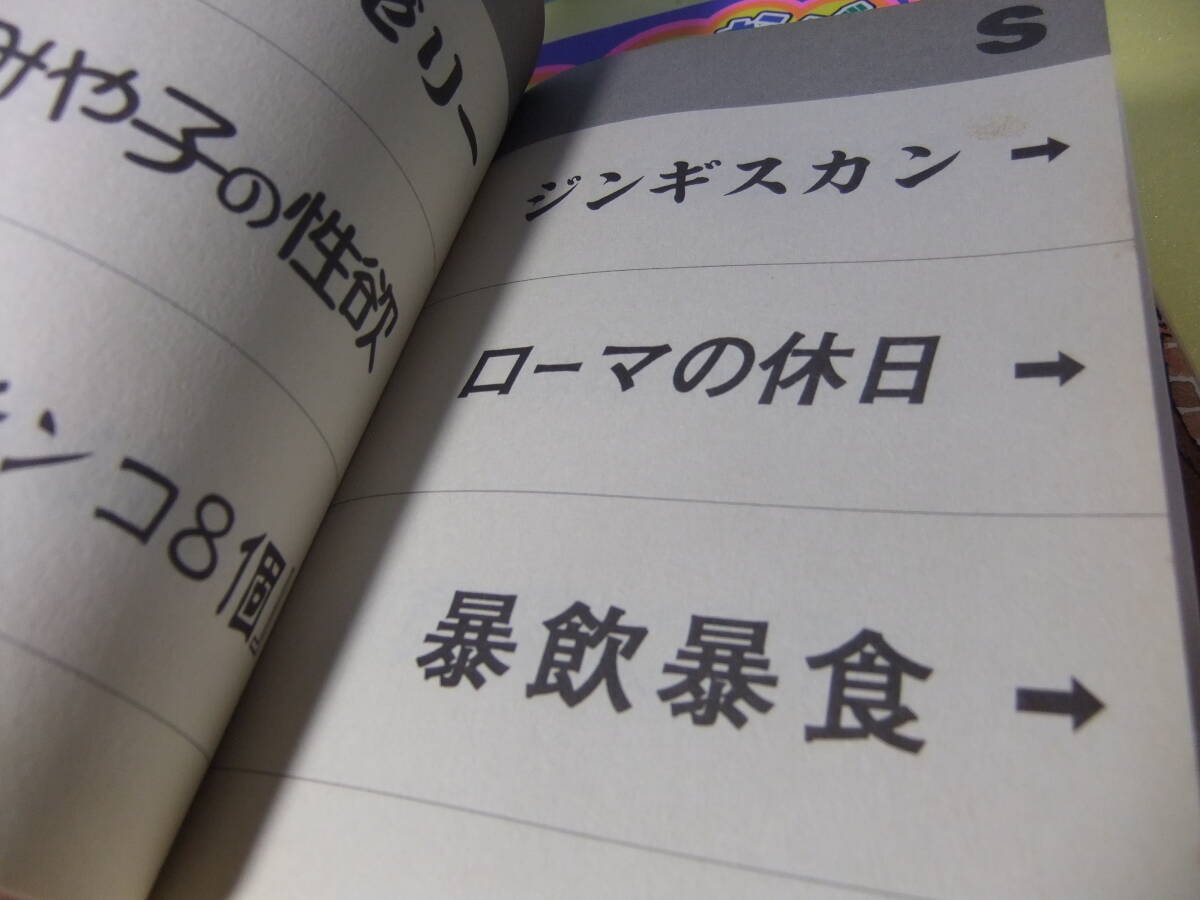 ゼリー
みや子の性欲
ンコ8個
S
ジンギスカン →
ローマの休日 →
暴飲暴食 →